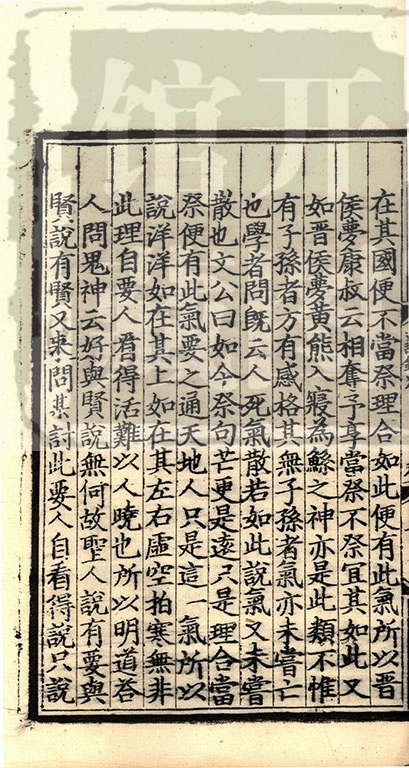 在其國便不當祭理合如此便有此氣所以晋
侯夢康叔云相奪予享當祭不祭冝其如此又
如晋侯夢黄熊入寢為鯀之神亦是此類不惟
有子孫者方有感格其無子孫者氣亦未嘗亡
也學者問旣云人死氣散若如此說氣又未嘗
散也文公曰如今祭句芒更是遠只是理合當
祭便有此氣要之通天地人只是這一氣所以
說洋洋如在其上如在其左右虛空拍塞無非
此理自要人看得活難以人曉也所以明道荅
人問鬼神云好與賢說無何故聖人說有要與
賢說有賢又来問某討此要人自看得說只說